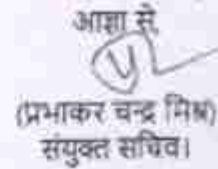 आज्ञा से
(प्रभाकर चन्द्र मिश्र)
संयुक्त सचिव।